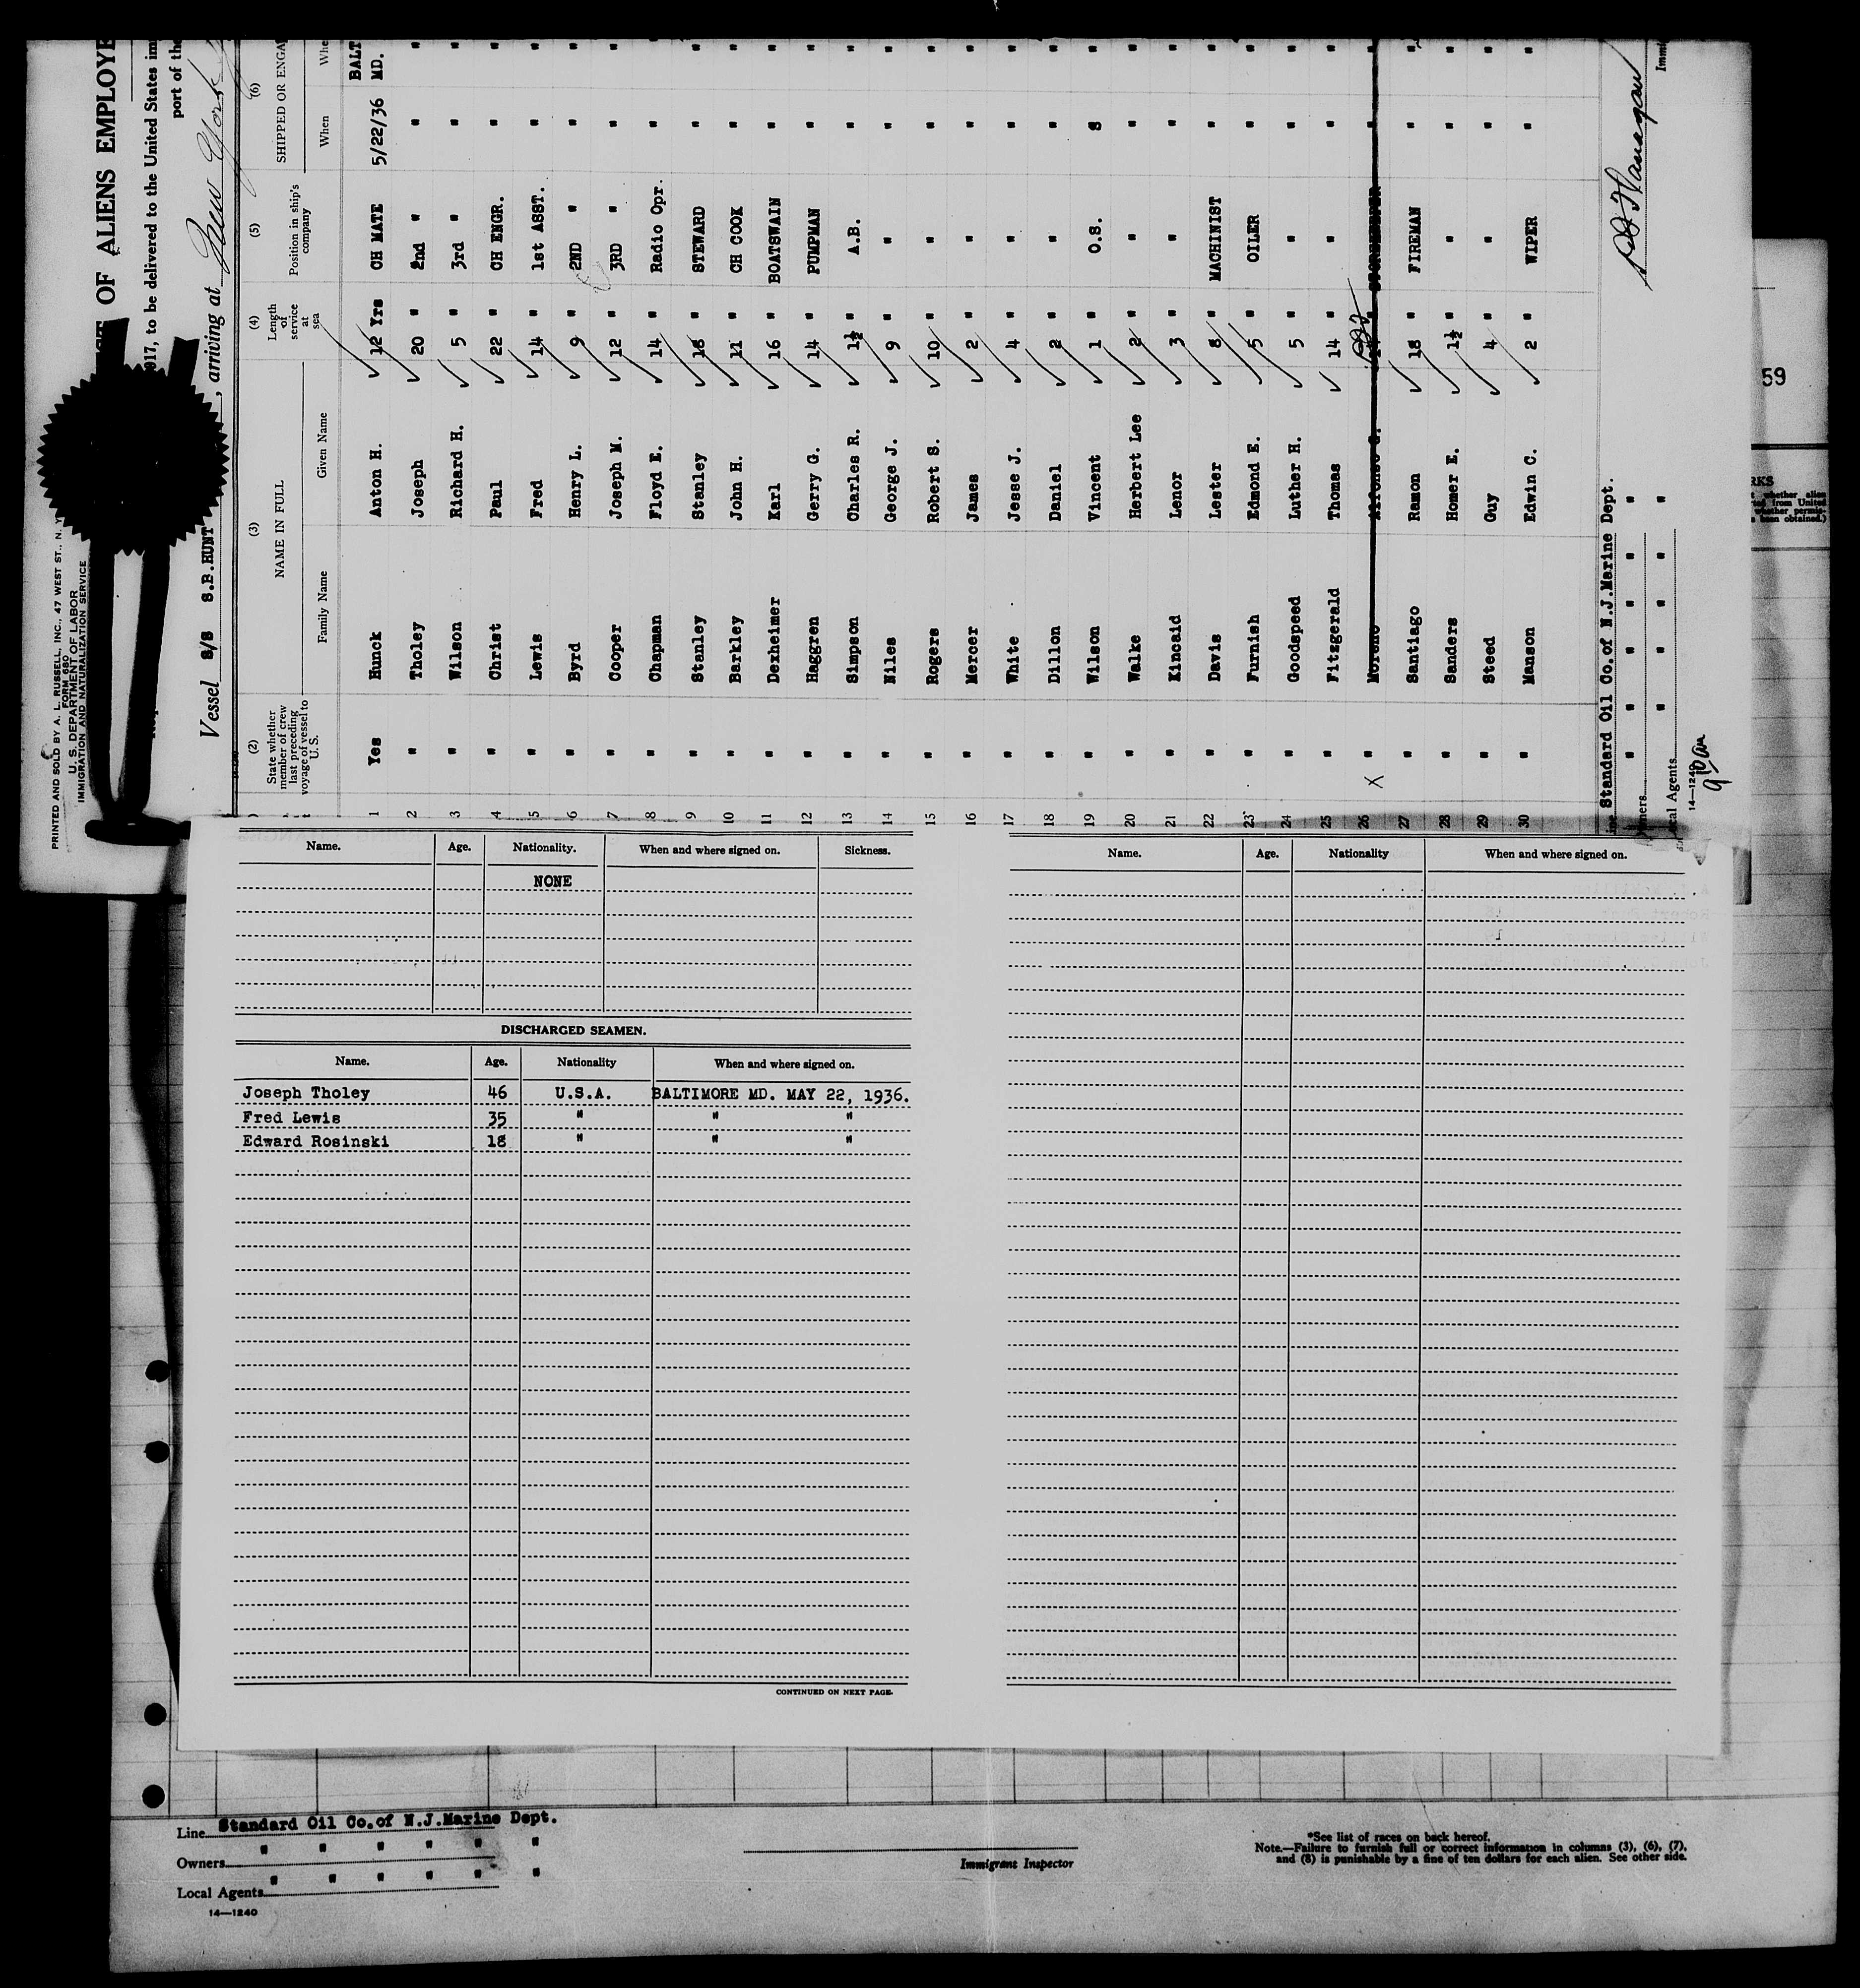 PRINTED AND SOLD BY A. L. RUSSELL, INC., 47 WEST ST., N. Y.
FORM 680
U. S. DEPARTMENT OF LABOR
IMMIGRATION AND NATURALIZATION SERVICE
OF ALIENS EMPLOYE
917, to be delivered to the United States im
port of the
Vessel S/S S.B.HUNT, arriving at New York
(2) (3) (4) (5) (6)
State whether member of crew last preceding voyage of vessel to U. S. NAME IN FULL Length of service at sea Position in ship's company SHIPPED OR ENGA
Family Name Given Name When Whe
1 Yes Hunck Anton H. 12 Yrs CH MATE 5/22/36 BALT MD.
2 " Tholey Joseph 20 " 2nd " " "
3 " Wilson Richard H. 5 " 3rd " " "
4 " Christ Paul 22 " CH ENGR. " "
5 " Lewis Fred 14 " 1st ASST. " "
6 " Byrd Henry L. 9 " 2ND " " "
7 " Cooper Joseph M. 12 " 3RD " " "
8 " Chapman Floyd E. 14 " Radio Opr. " "
9 " Stanley Stanley 18 " STEWARD " "
10 " Barkley John H. 11 " CH COOK " "
11 " Dexheimer Karl 16 " BOATSWAIN " "
12 " Haggren Gerry G. 14 " PUMPMAN " "
13 " Simpson Charles R. 1½ " A.B. " "
14 " Niles George J. 9 " " " "
15 " Rogers Robert S. 10 " " " "
16 " Mercer James 2 " " " "
17 " White Jesse J. 4 " " " "
18 " Dillon Daniel 2 " " " "
19 " Wilson Vincent 1 " O.S. 8 "
20 " Walke Herbert Lee 2 " " " "
21 " Kincaid Lenor 3 " " " "
22 " Davis Lester 8 " MACHINIST " "
23 " Furnish Edmond E. 5 " OILER " "
24 " Goodspeed Luther H. 5 " " " "
25 " Fitzgerald Thomas 14 " " " "
26 X " Moreno Alfonso G. " STOREKEEPER " "
27 " Santiago Ramon 18 " FIREMAN " "
28 " Sanders Homer E. 1½ " " " "
29 " Steed Guy 4 " " " "
30 " Manson Edwin C. 2 " WIPER " "
ine Standard Oil Co.of N.J.Marine Dept.
wners " " " " " "
ocal Agents " " "
14—1240
9 10 am
Immi
59
RKS
whether alien
ed from United
whether permis-
s been obtained.)
Name. Age. Nationality. When and where signed on. Sickness.
NONE
DISCHARGED SEAMEN.
Name. Age. Nationality When and where signed on.
Joseph Tholey 46 U.S.A. BALTIMORE MD. MAY 22, 1936.
Fred Lewis 35 " " "
Edward Rosinski 18 " " "
CONTINUED ON NEXT PAGE.
Name. Age. Nationality When and where signed on.
Line Standard Oil Co.of N.J.Marine Dept.
Owners " " " " " "
Local Agents " " " " " "
14—1240
Immigrant Inspector
*See list of races on back hereof.
Note.—Failure to furnish full or correct information in columns (3), (6), (7),
and (8) is punishable by a fine of ten dollars for each alien. See other side.